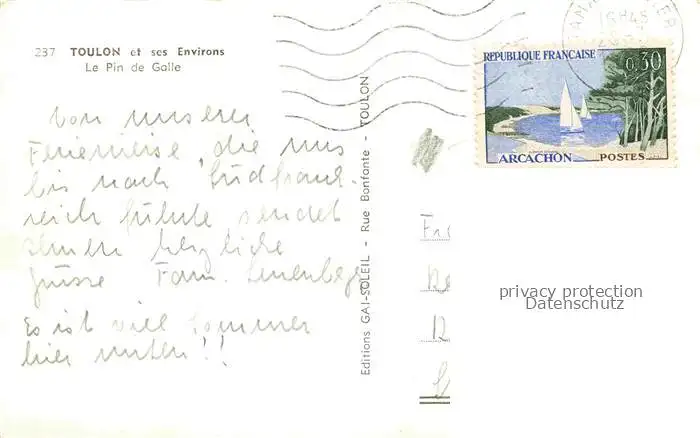 237 TOULON et ses Environs
Le Pin de Galle
Von unserer
Ferienreise, die uns
bis nach Südfrank-
reich führte, sendet
Ihnen herzliche
Grüsse Fam. Leuenberger
Es ist viel Sommer
hier unten!!
Editions GAI-SOLEIL - Rue Bonfante - TOULON
18H45
REPUBLIQUE FRANÇAISE
0,30
ARCACHON POSTES
privacy protection
Datenschutz